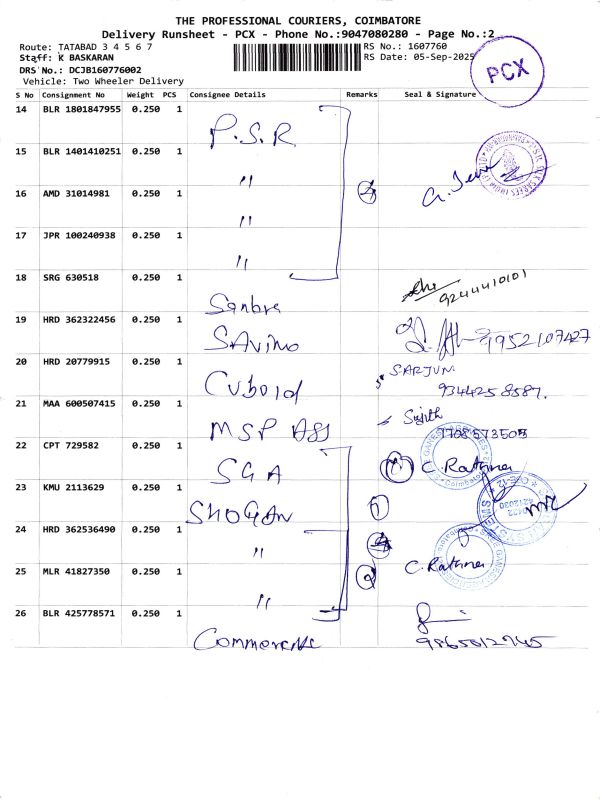 THE PROFESSIONAL COURIERS, COIMBATORE
Delivery Runsheet - PCX - Phone No.:9047080280 - Page No.:2
Route: TATABAD 3 4 5 6 7
RS No.: 1607760
Staff: K BASKARAN
RS Date: 05-Sep-2025
DRS No.: DCJB160776002
Vehicle: Two Wheeler Delivery
PCX
S No Consignment No Weight PCS Consignee Details Remarks Seal & Signature
14 BLR 1801847955 0.250 1
P.S.R
15 BLR 1401410251 0.250 1
"
16 AMD 31014981 0.250 1
4
"
17 JPR 100240938 0.250 1
"
18 SRG 630518 0.250 1
9244410101
19 HRD 362322456 0.250 1
SAvino
9952107427
20 HRD 20779915 0.250 1
SARJUN
Cuboid
9344258587.
21 MAA 600507415 0.250 1
Sujith
MSP ASS
7708573505
22 CPT 729582 0.250 1
SGA
1 C. Rathna
23 KMU 2113629 0.250 1
SHOGAN
1
24 HRD 362536490 0.250 1
"
25 MLR 41827350 0.250 1
2 C. Rathna
"
26 BLR 425778571 0.250 1